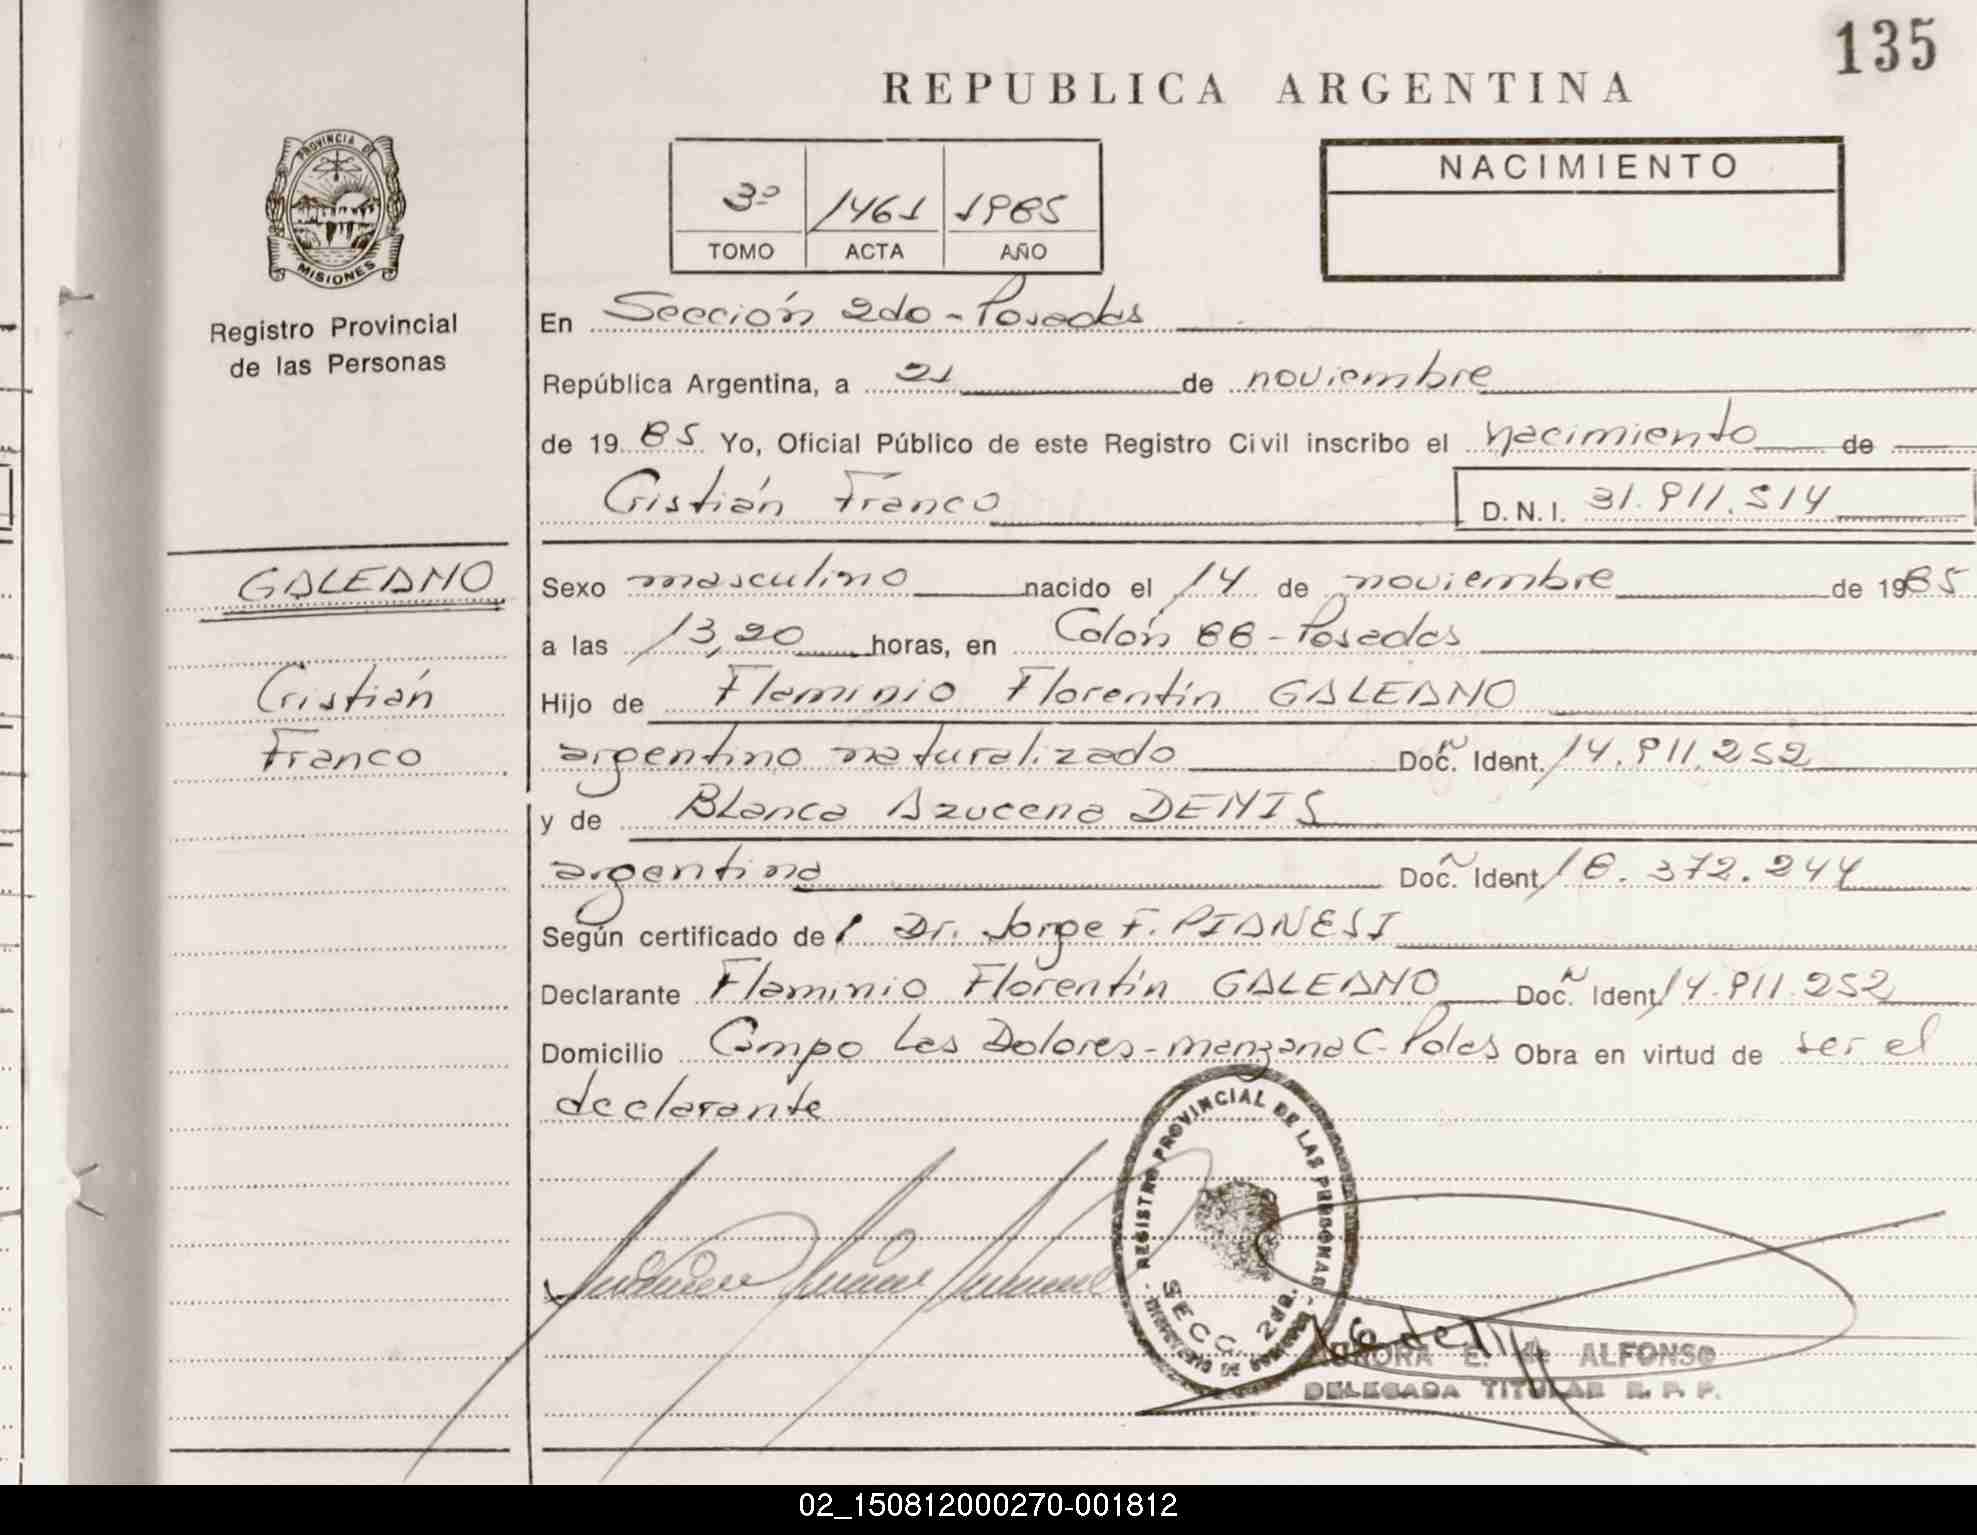 135
REPUBLICA ARGENTINA
PROVINCIA DE
MISIONES
Registro Provincial
de las Personas
3º 1461 1985
TOMO ACTA AÑO
NACIMIENTO
En Sección 2da - Posadas
República Argentina, a 21 de noviembre
de 19 85 Yo, Oficial Público de este Registro Civil inscribo el nacimiento de
Cristián Franco D.N.I. 31.911.514
GALEANO
Cristián
Franco
Sexo masculino nacido el 14 de noviembre de 1985
a las 13,20 horas, en Colón 88 - Posadas
Hijo de Flaminio Florentín GALEANO
argentino naturalizado Doc. Ident. 14.911.252
y de Blanca Azucena DENIS
argentina Doc. Ident. 18.372.244
Según certificado de Dr. Jorge F. PIANESI
Declarante Flaminio Florentín GALEANO Doc. Ident. 14.911.252
Domicilio Campo Las Dolores - manzana C - Pdas Obra en virtud de ser el
declarante
REGISTRO PROVINCIAL DE LAS PERSONAS
SECC. 2da.
E. de ALFONSO
DELEGADA TITULAR R. P. P.
02_150812000270-001812